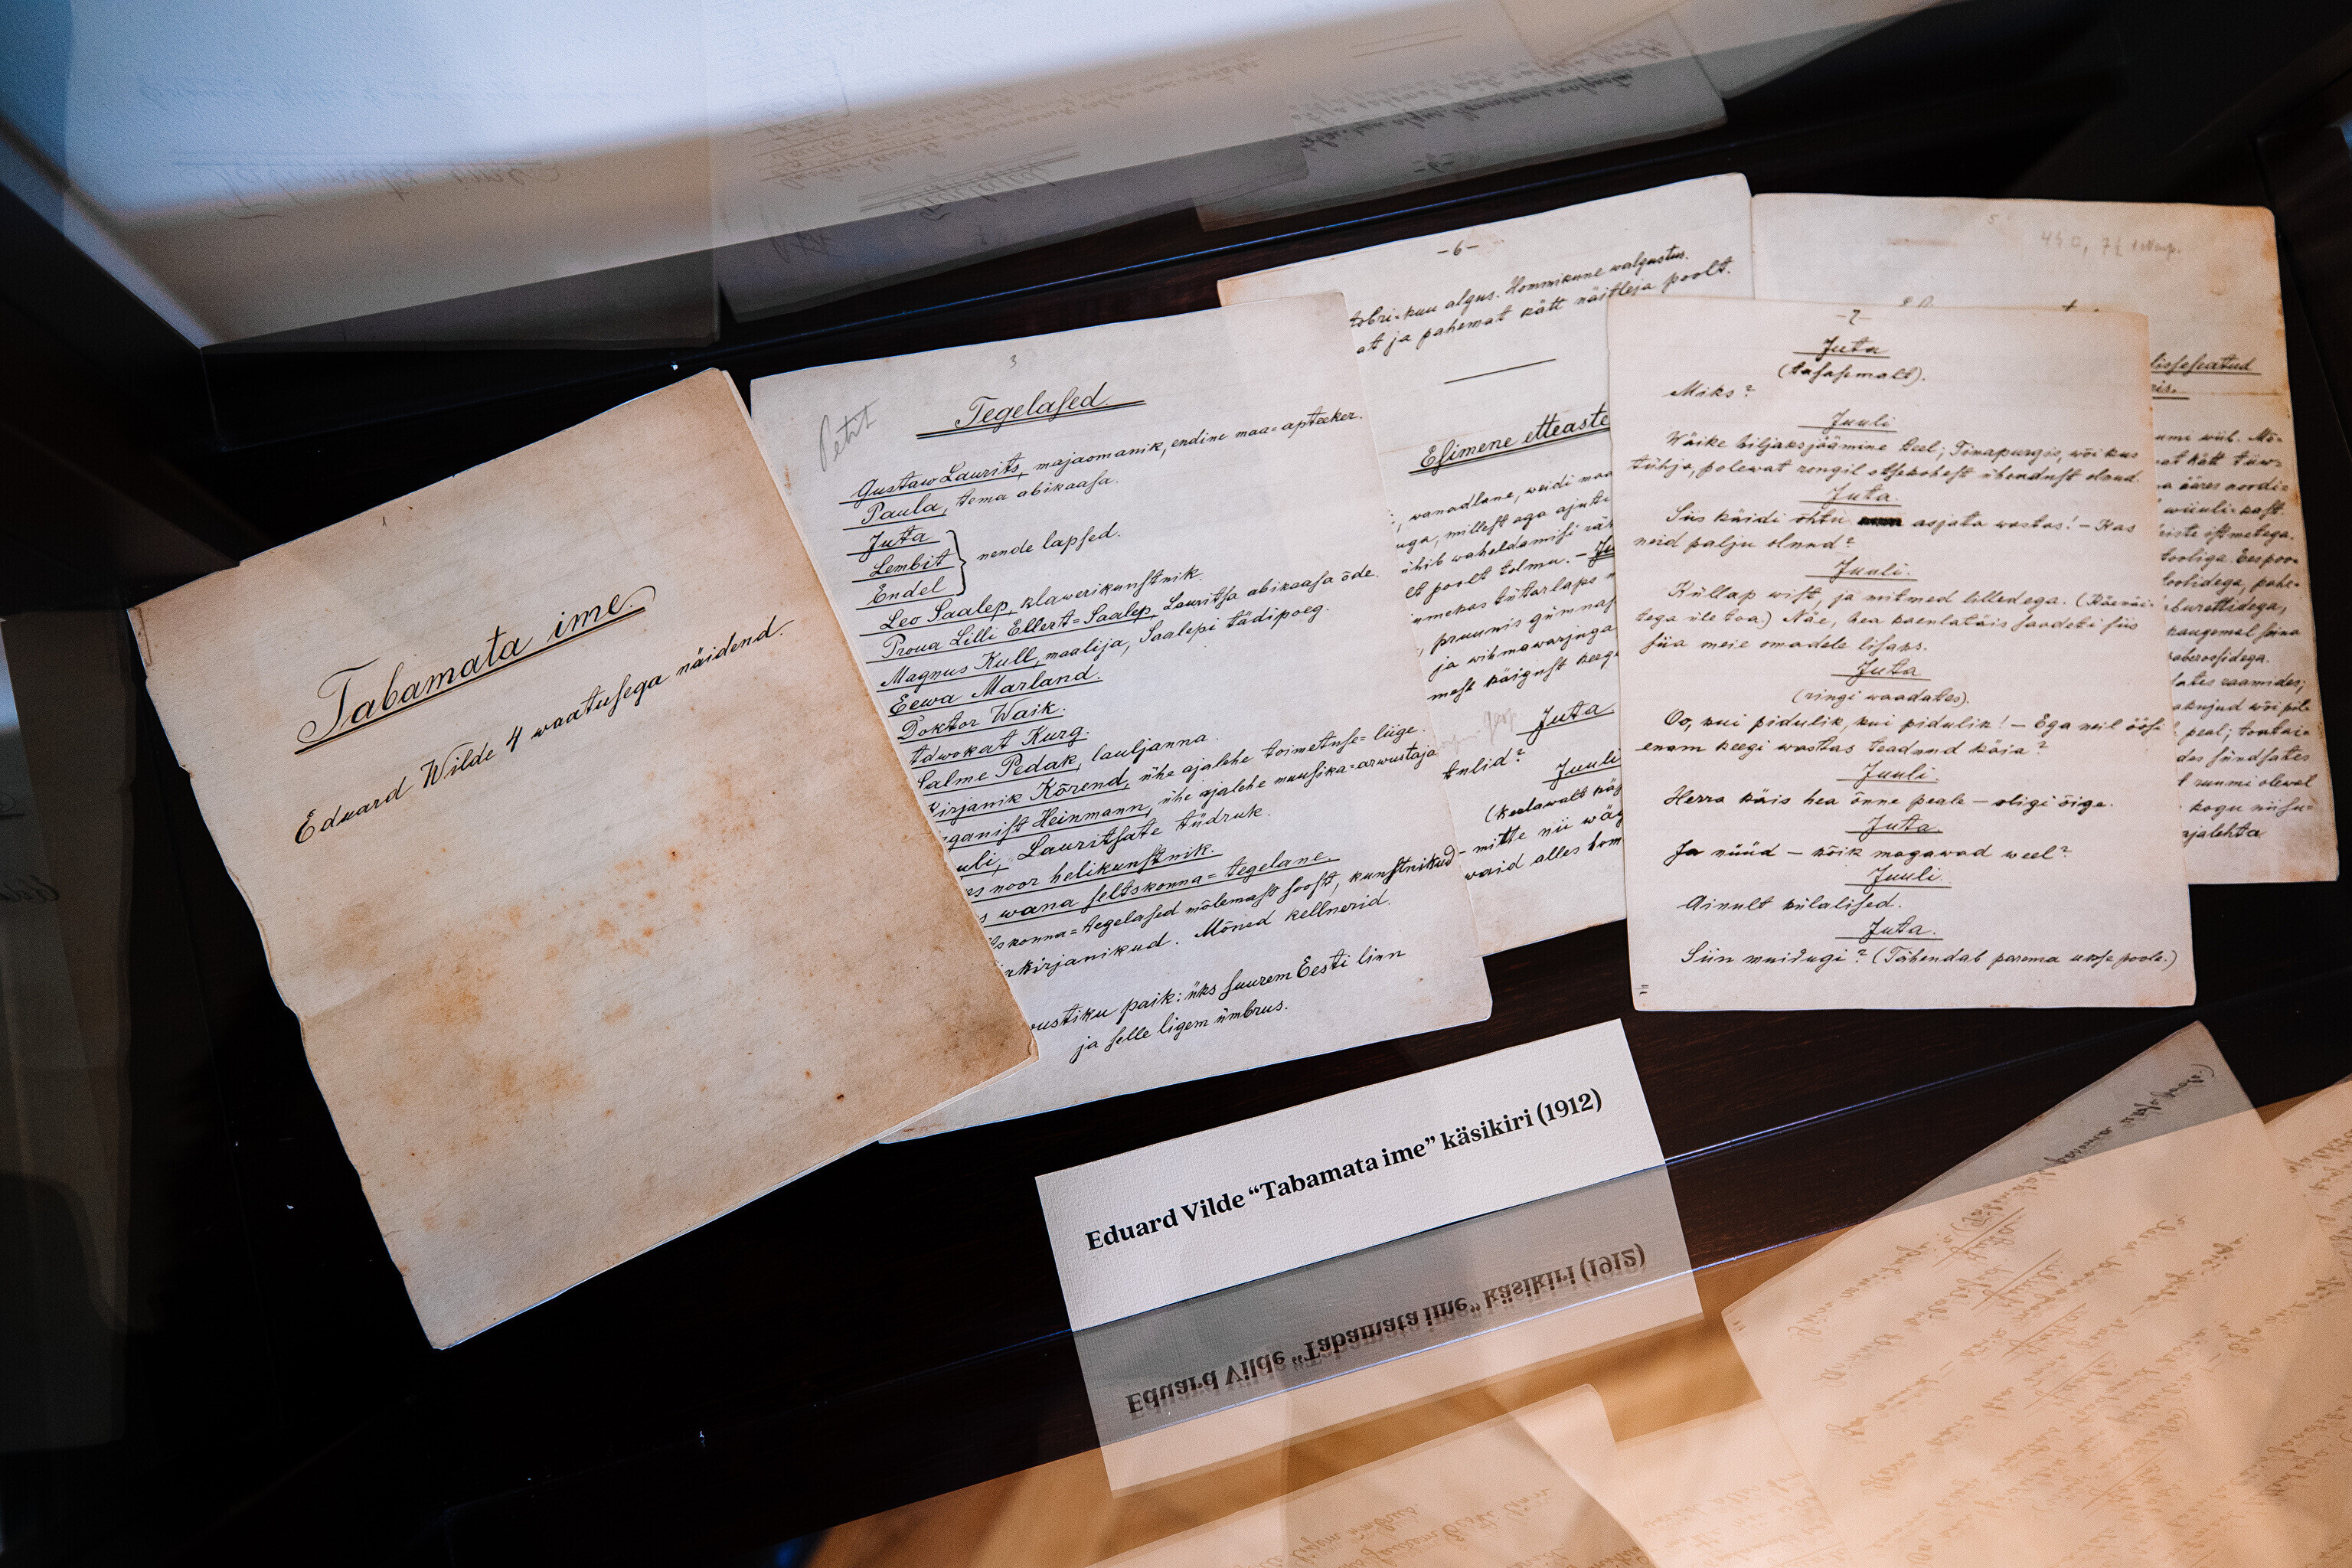 Tabamata ime.
Eduard Wilde 4 waatusega näidend.
3
Petit
Tegelased.
Gustaw Laurits, majaomanik, endine maa=apteeker.
Paula, tema abikaasa.
Juta
Lembit
Endel
nende lapsed.
Leo Saalep, klawerikunstnik.
Proua Lilli Ellert=Saalep, Lauritsa abikaasa õde.
Magnus Kull, maalija, Saalepi tädipoeg.
Eewa Marland.
Doktor Waik.
Adwokat Kurg.
Salme Pedak, lauljanna.
Kirjanik Kõrend, ühe ajalehe toimetuse=liige.
ganist Heinmann, ühe ajalehe muusika=arwustaja
uli, Lauritsate tüdruk.
s noor helikunstnik.
s wana seltskonna=tegelane.
lskonna=tegelased mõlemast soost, kunstnikud
kirjanikud. Mõned kellnerid.
ustiku paik: üks suurem Eesti linn
ja selle ligem ümbrus.
-6-
tobri-kuu algus. Hommikune walgustus.
at ja pahemat kätt näitleja poolt.
Esimene etteaste
wanadlane, weidi maa
uga, millest aga ajuti
ühib waheldamisi rät
lt poolt tolmu. - Ju
inmekas tütarlaps
, pruunis gümnas
ja wihmawarjuga
mast käigust kerge
Juta
tulid?
Juuli
(keelawalt käj
- mitte nii wäg
waid alles hom
-7-
Juta
(tasasemalt).
Miks?
Juuli
Wäike hiljaksjäämine teel; Tinapurgis, wõi kus
tühja, polewat rongil otsekohest ühendust olnud.
Juta.
Siis käidi õhtu asjata wastas! - Kas
neid palju olnud?
Juuli.
Küllap wist, ja mitmed lilledega. (Käenäi-
tega üle toa.) Näe, hea kaenlatäis saadeti siis
siia meie omadele lisaks.
Juta
(ringi waadates).
Oo, kui pidulik, kui pidulik! - Ega neil öösi
enam keegi wastas teadnud käia?
Juuli.
Herra käis hea õnne peale - oligi õige.
Juta.
Ja nüüd - kõik magawad weel?
Juuli.
Ainult külalised.
Juta.
Siin muidugi? (Tähendab parema ukse poole.)
5
Eduard Vilde “Tabamata ime” käsikiri (1912)